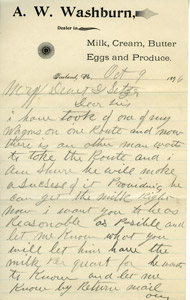 A. W. Washburn,
Dealer in
Milk, Cream, Butter
Eggs and Produce.
Oct 9 1896
Dear Sir
i have took of one of my
Wagons on one Route and now
there is an other man wants
to take the Route and i
am Shure he will make
a Sucsess of it Providing he
can get the milk Right
Now i want you to be as
Reasonable as Posible and
let me Know what you
will let him have the
milk Per quart for he wants
to Know and let me
Know by Return mail